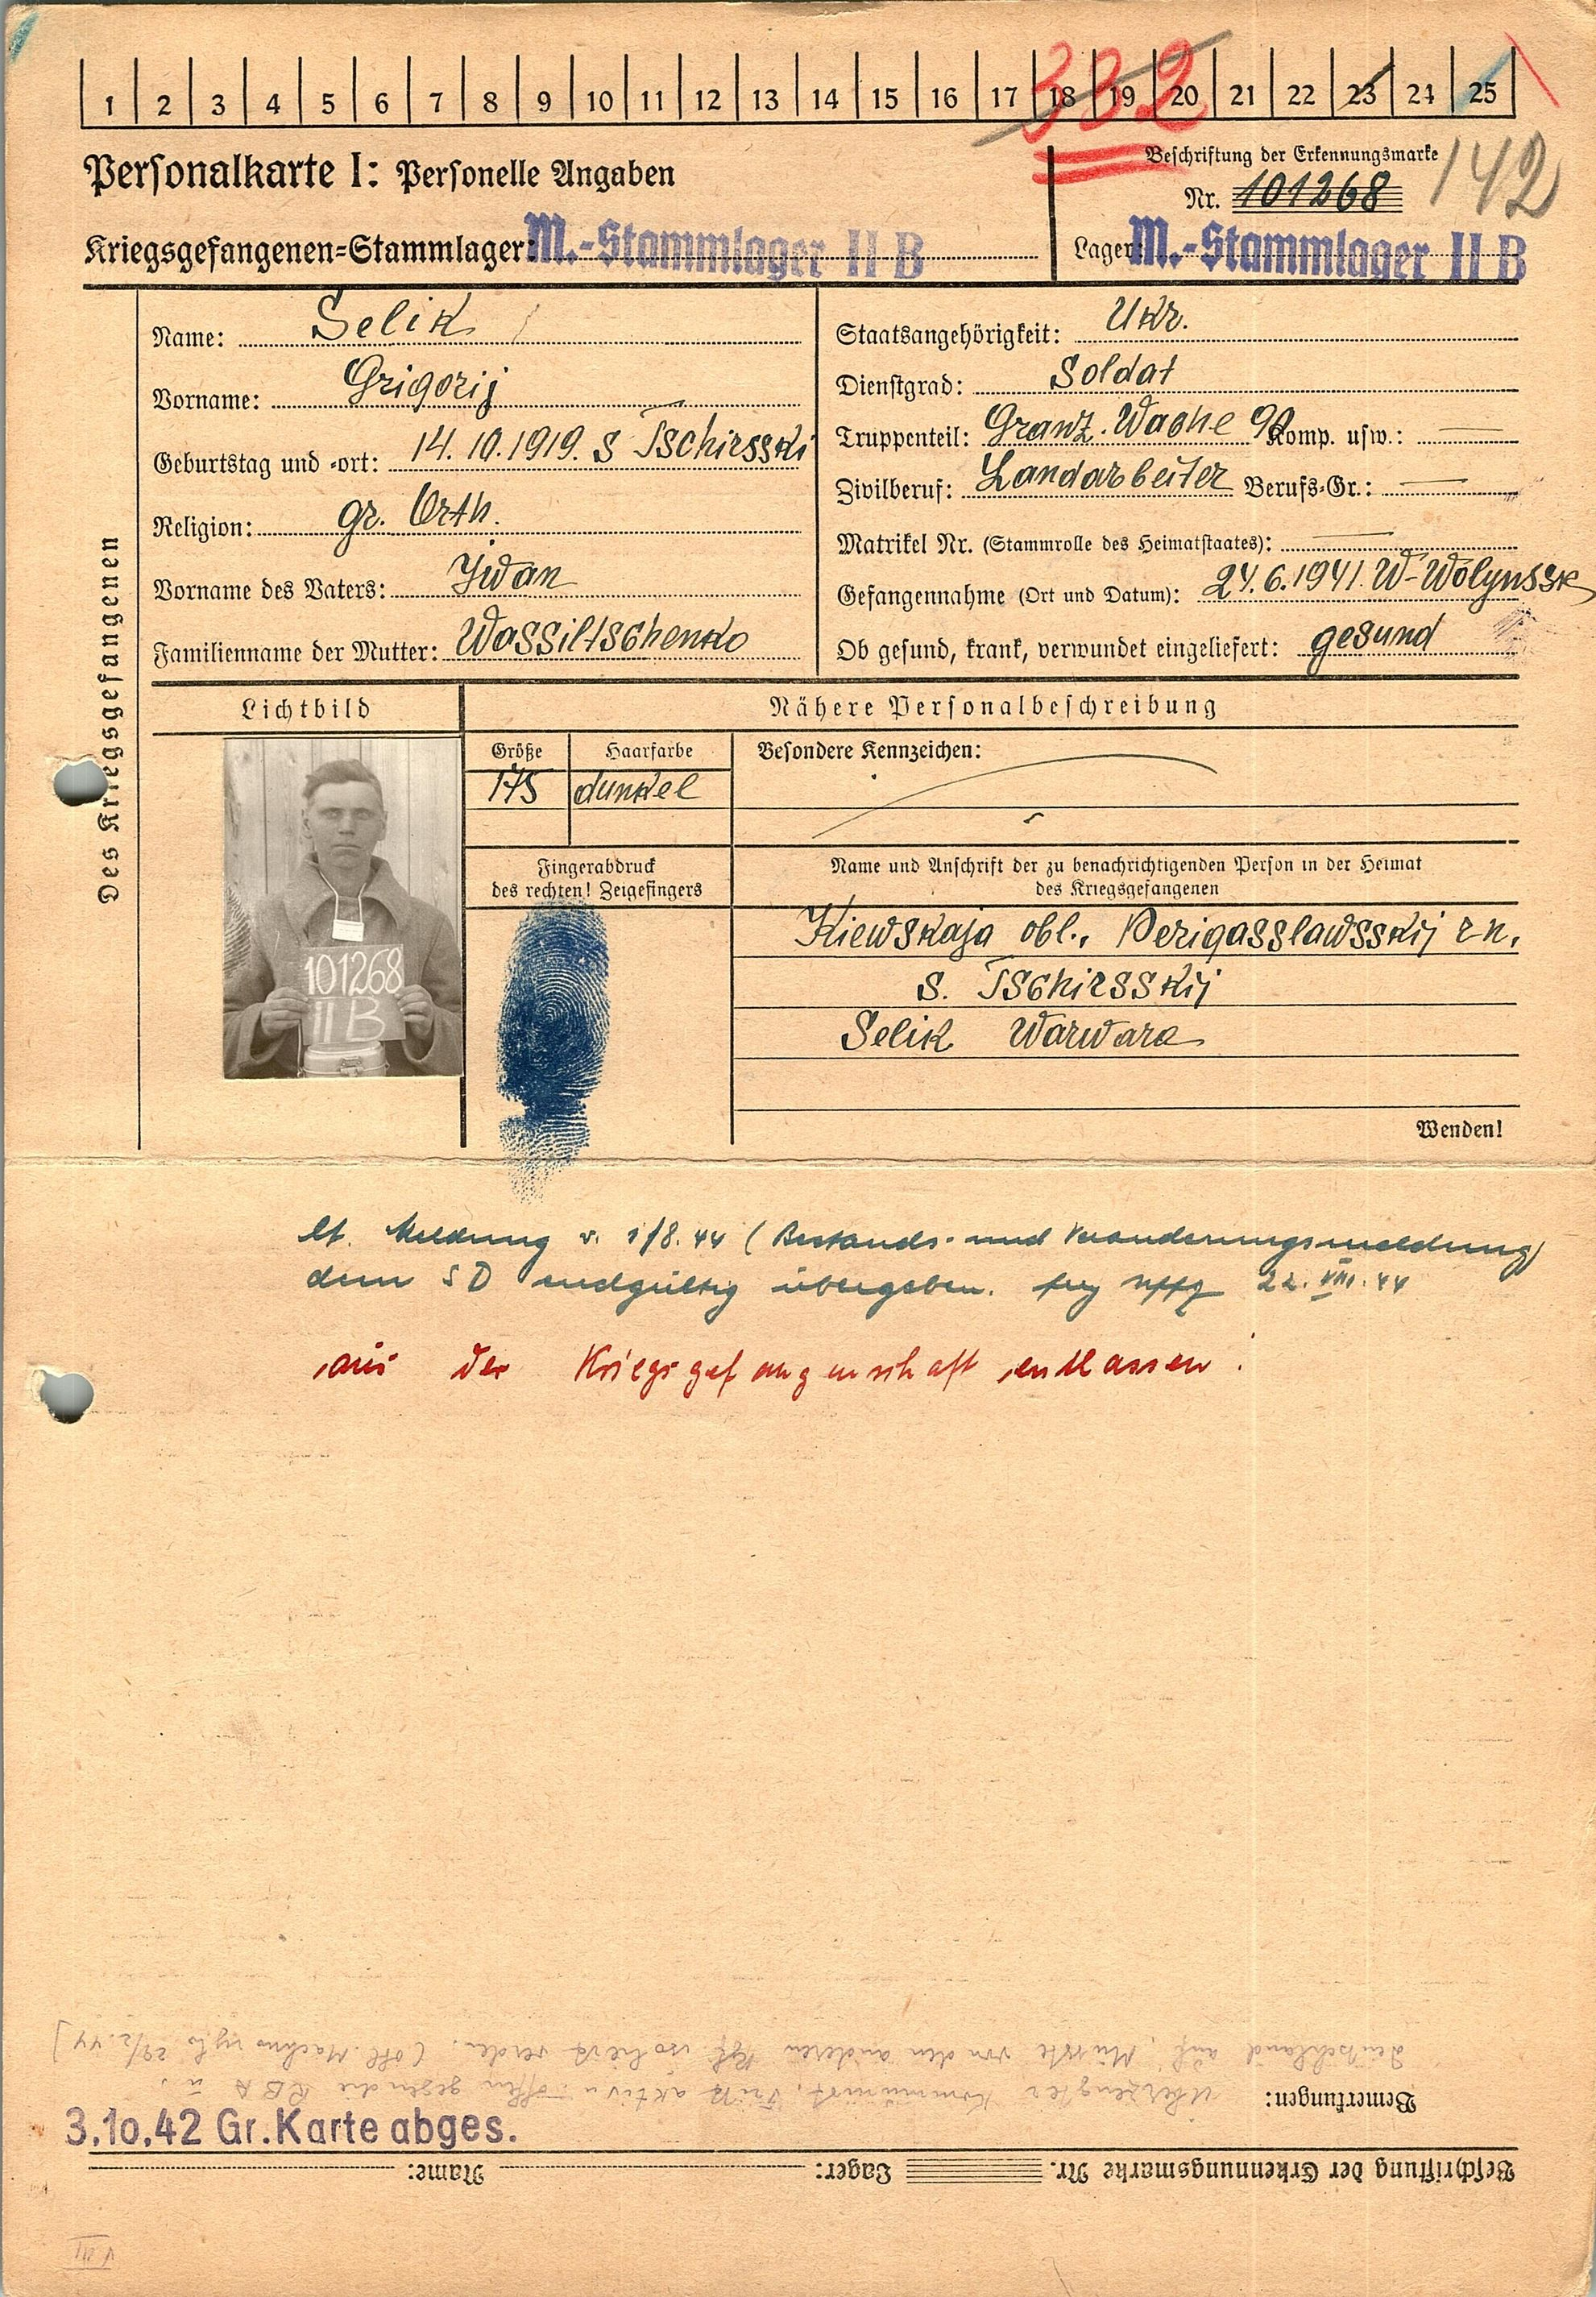 1 2 3 4 5 6 7 8 9 10 11 12 13 14 15 16 17 18 19 20 21 22 23 24 25
332
Personalkarte I: Personelle Angaben
Beschriftung der Erkennungsmarke
Nr. 101268
142
Kriegsgefangenen-Stammlager: M.-Stammlager II B
Lager: M.-Stammlager II B
Des Kriegsgefangenen
Name: Selik
Vorname: Grigorij
Geburtstag und -ort: 14. 10. 1919. s Tschirsski
Religion: gr. Orth.
Vorname des Vaters: Jwan
Familienname der Mutter: Wassiltschenko
Staatsangehörigkeit: Ukr.
Dienstgrad: Soldat
Truppenteil: Granz. Wache 90 Komp. usw.: —
Zivilberuf: Landarbeiter Berufs-Gr.: —
Matrikel Nr. (Stammrolle des Heimatstaates): —
Gefangennahme (Ort und Datum): 24.6.1941. W-Wolynssk
Ob gesund, krank, verwundet eingeliefert: gesund
Lichtbild
101268
II B
Nähere Personalbeschreibung
Größe
175
Haarfarbe
dunkel
Besondere Kennzeichen:
Fingerabdruck
des rechten! Zeigefingers
Name und Anschrift der zu benachrichtigenden Person in der Heimat
des Kriegsgefangenen
Kiewskaja obl., Perigasslawsskij rn.
s. Tschirsskij
Selik Warwara
Wenden!
lt. Meldung v. 1/8. 44 (Bestands- und Veränderungsmeldung)
dem SD endgültig übergeben. 22. VIII. 44
aus der Kriegsgefangenschaft entlassen.
Beschriftung der Erkennungsmarke Nr. Lager: Name:
Bemerkungen: Überzeugter Kommunist, tritt aktiv u. offen gegen die RBA u.
Deutschland auf. Müsste von den anderen Kgf. isoliert werden.
3.10.42 Gr. Karte abges.
VIII